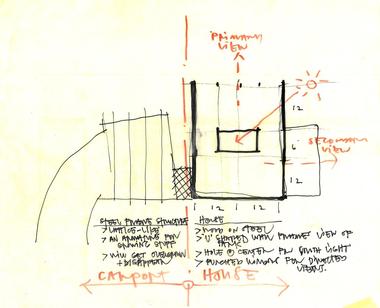 PRIMARY
VIEW
12
6
SECONDARY
VIEW
12
12 12
STEEL FRAME STRUCTURE
> LATTICE-LIKE
> AN ARMATURE FOR
GROWING STUFF
> WILL GET OVERGROWN
+ DISAPPEAR
HOUSE
> WOOD OR STEEL
> 'U' SHAPED WITH FRAMED VIEW OF
> HOLE @ CENTER FOR SOUTH LIGHT
> PUNCHED WINDOWS FOR DIRECTED
VIEWS.
CARPORT HOUSE